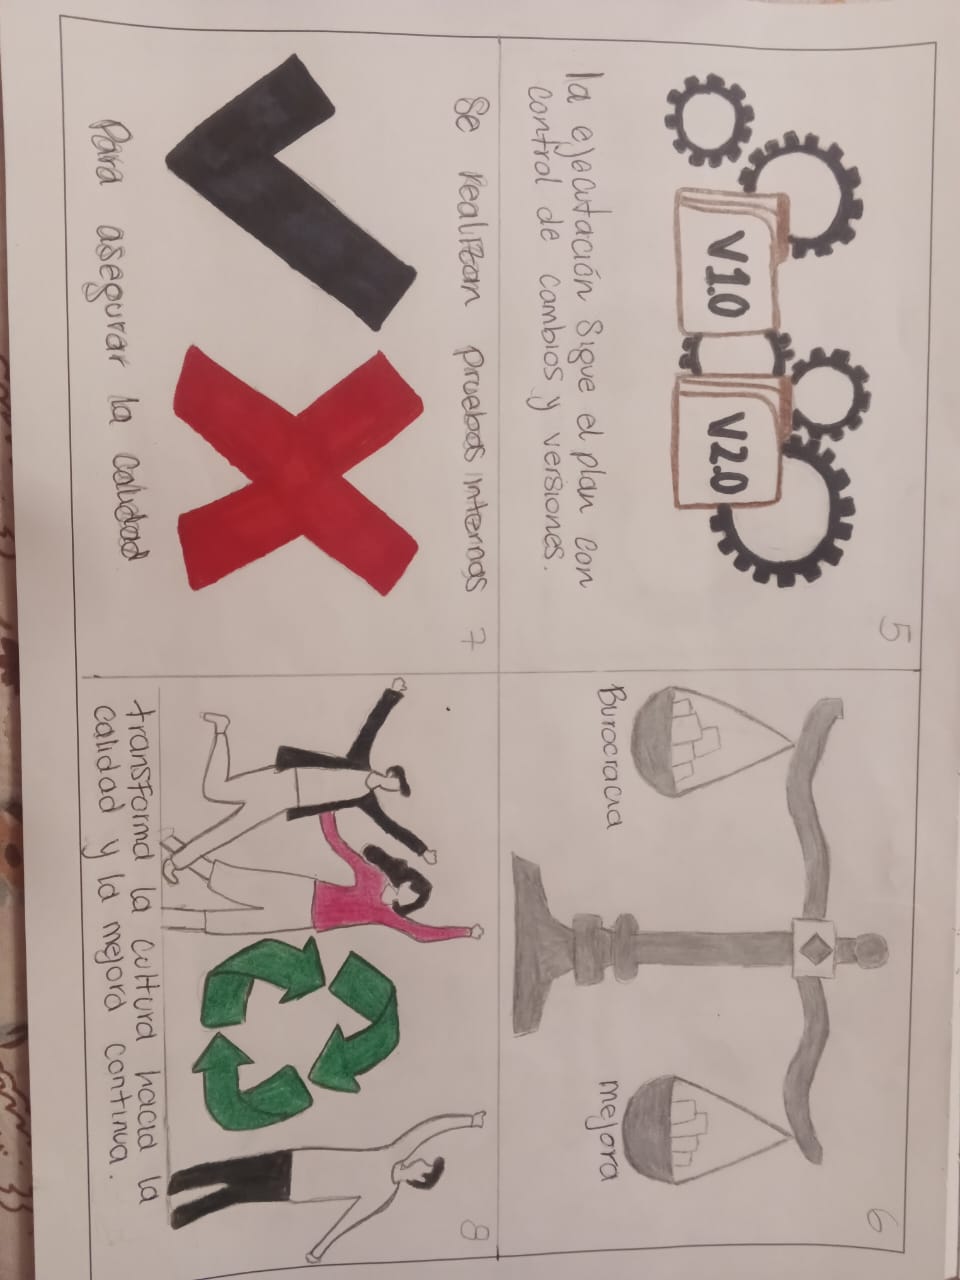 5
V1.0
V2.0
la ejecutación sigue el plan con
control de cambios y versiones.
6
Burocracia
mejora
7
Se realizan pruebas internas
Para asegurar la calidad
8
transforma la cultura hacia la
calidad y la mejora continua.